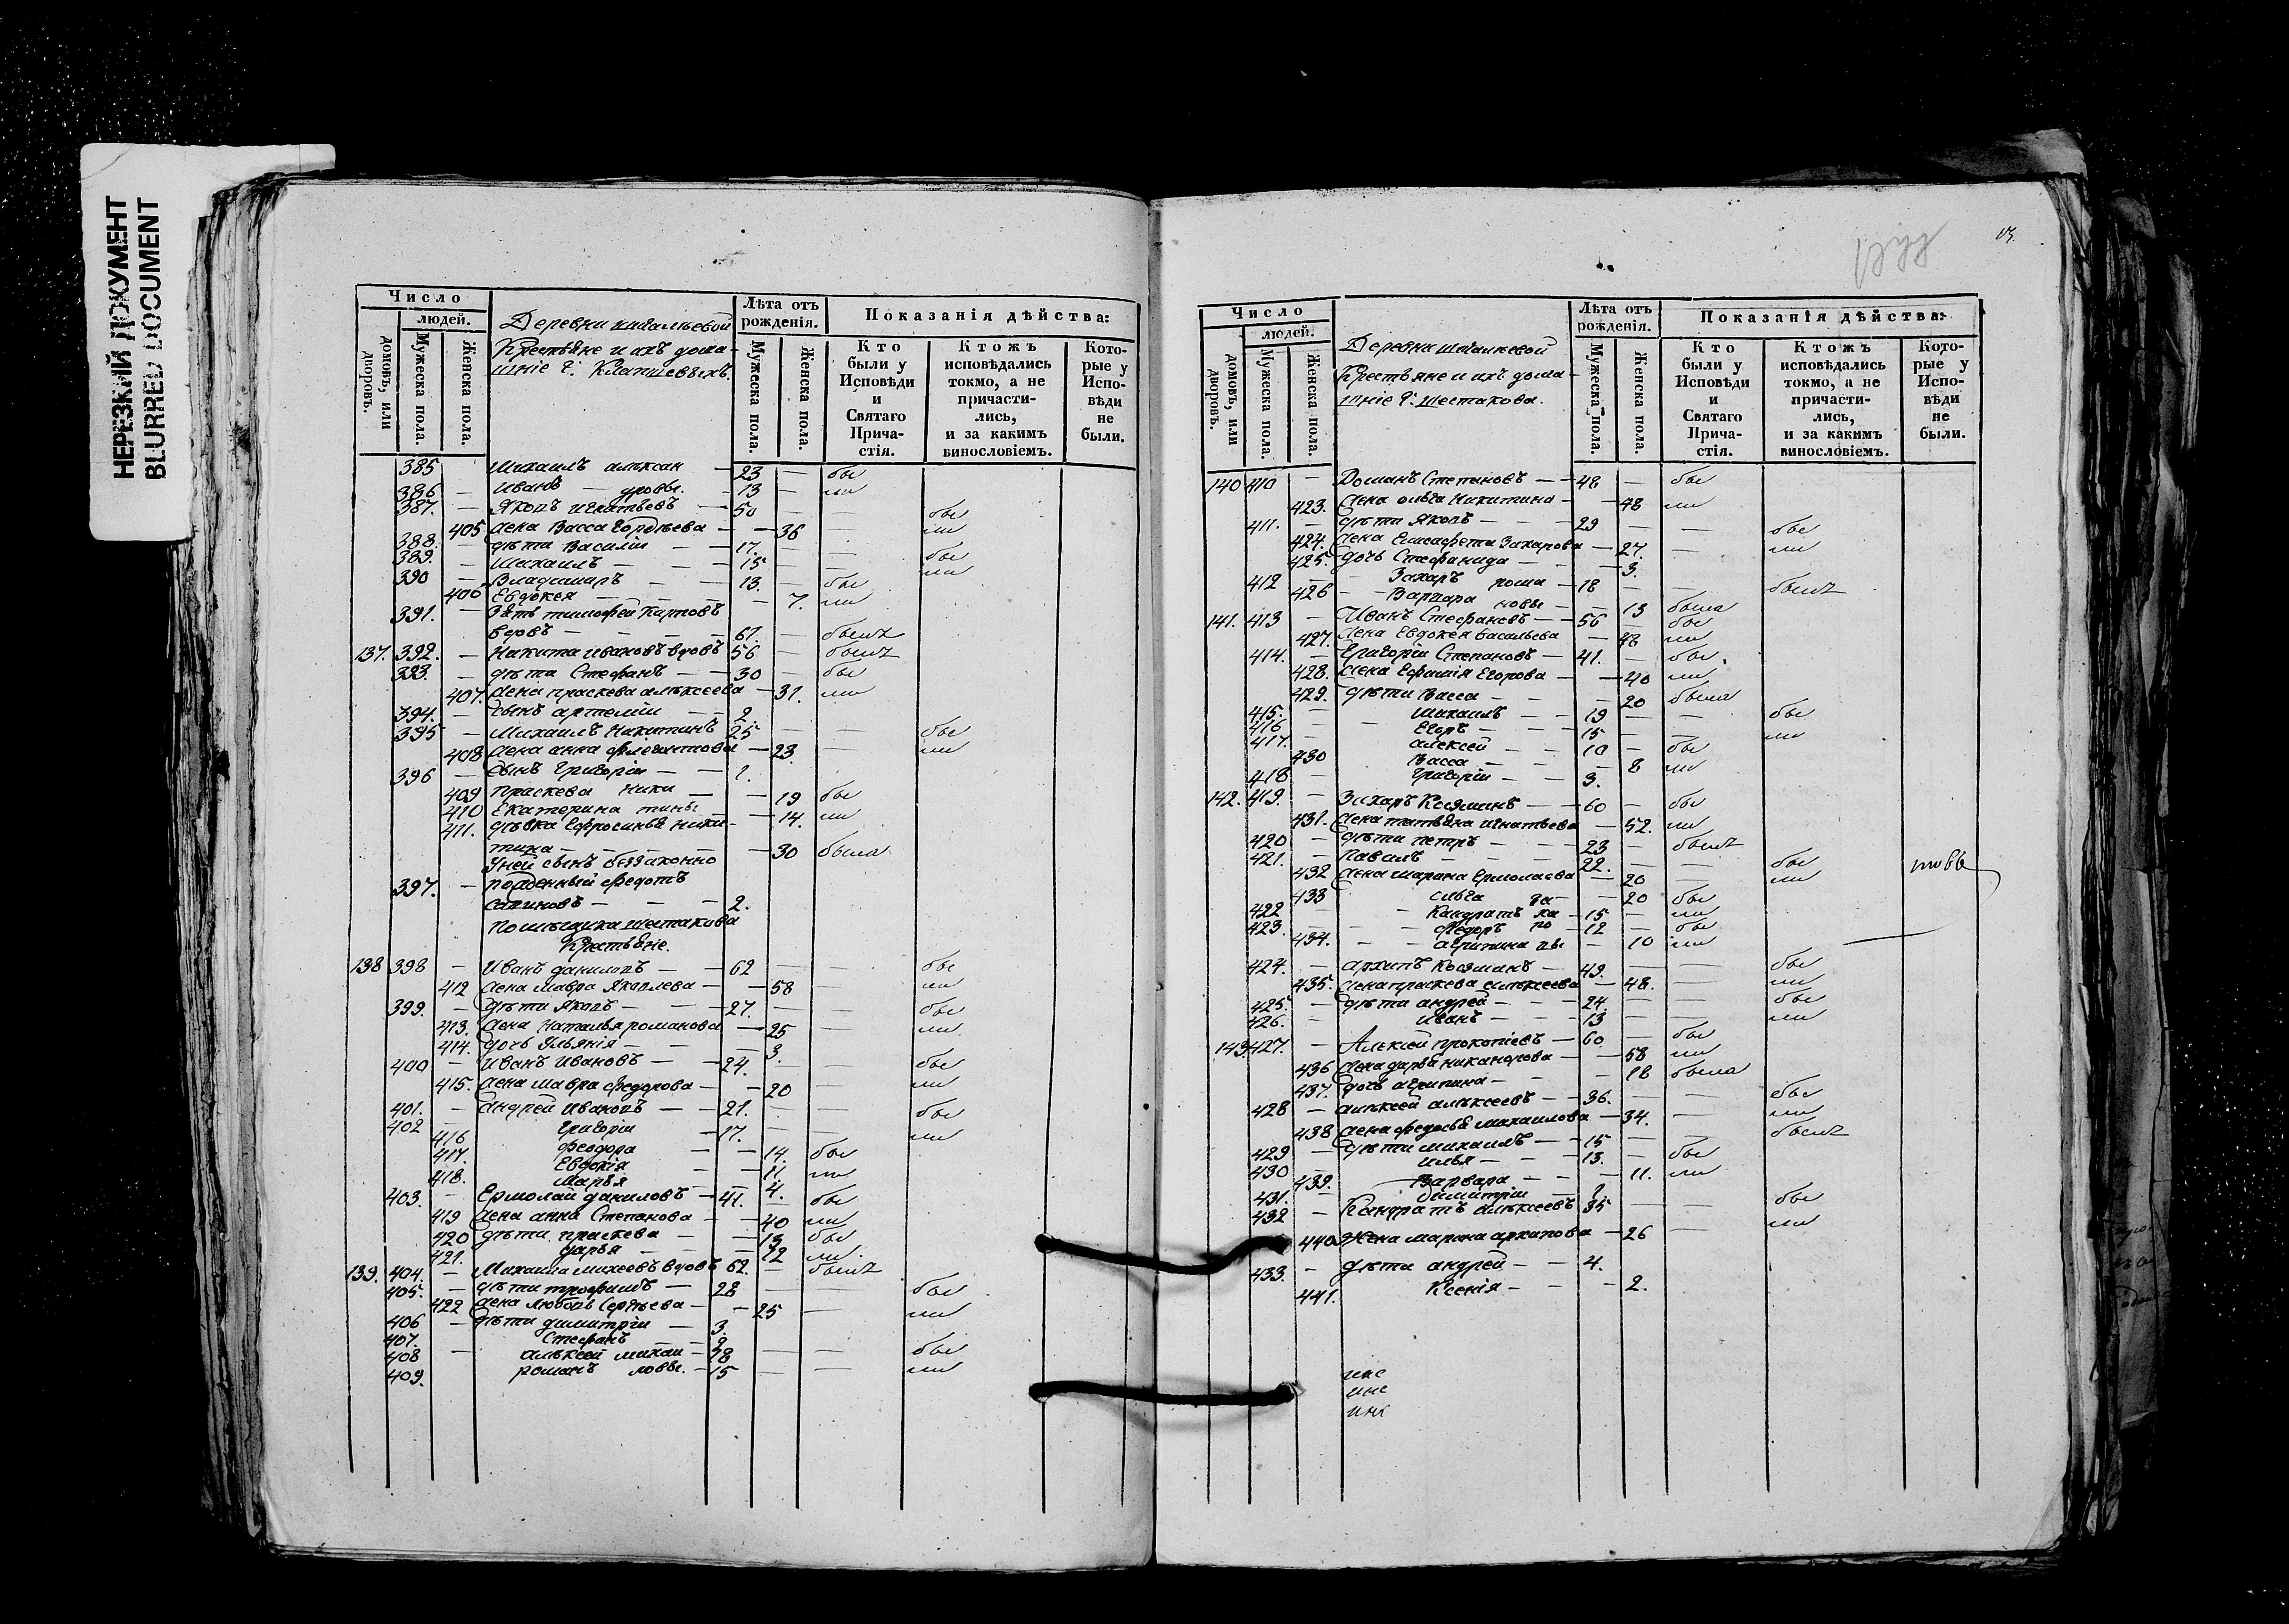 НЕРЕЗКИЙ ДОКУМЕНТ
BLURRED DOCUMENT
Число
людей.
домовъ, или дворовъ.
Мужеска пола.
Женска пола.
Деревни
Крестьяне и ихъ дома-
шніе г.
Лѣта отъ рожденія.
Мужеска пола.
Женска пола.
Показанія дѣйства:
Кто были у Исповѣди и Святаго Прича-стія.
Ктожъ исповѣдались токмо, а не причасти-лись, и за какимъ винословіемъ.
Кото-рые у Испо-вѣди не были.
385 Михаилъ алексан — 23 — бы
386 — Иванъ — дровы. — 13 — ли
387. — Яковъ игнатьевъ — 50 — — бы
405 жена Васса Гордѣева — — 36 — ли
388. — дѣти Василіи — — 17. — —
389. — Михаилъ — — 15 — — бы
390 — Владимиръ — — 13. — бы ли
406 Евдокея — — — 7. ли
391. — Зять тимофей Карповъ
вдовъ — — — 61. — былъ
137. 392. — Никита ивановъ вдовъ 56 — былъ
393. — дѣти Стефанъ — — 30 — бы
407. жена праскева алексеева — 31. ли
394. — сынъ артеміи — — 2.
395 — Михаилъ Никитинъ 25 — — бы
408 жена анна — 23 — ли
396 — Сынъ Григоріи — — 1.
409 праскева ники — — 19 бы
410 Екатерина тины — 14. ли
411. дѣвка Ефросинья ники-
тина — — — — 30 была
Уней сынъ беззаконно
397. — рожденный федотъ
савиновъ — — — 2.
помѣщика шестакова
Крестьяне.
138 398 — Иванъ даниловъ — — 62 — — бы
412 жена мавра Яковлева — — 58 — ли
399. — дѣти Яковъ — — 27. — — бы
413. жена Наталья романова — 25 — ли
414. дочь Ульянія — — — 3.
400 — Иванъ Ивановъ — — 24. — — бы
415. жена мавра федорова — — 20 — ли
401. — андрей ивановъ — — 21. — — бы
402 — Григоріи — 17. — — ли
416 феодора — — 14. бы
417. Евдокія — — 11. ли
418. Марья — — 4.
403. — Ермолай даниловъ — 41. — бы
419 жена анна Степанова — — 40 ли
420 дѣти праскева — — 13 бы
421. дарья — — — 12 ли
139. 404. — Михаила михеевъ вдовъ 62. — былъ
405. — дѣти трофимъ — 28 — — бы
422 жена любовь Сергѣева — — 25 — ли
406 — дѣти димитріи — 3.
407. Стефанъ — —
408 — алексей михаи — 18 — — бы
409. романъ ловы. — 15 — — ли
Число
людей.
домовъ, или дворовъ.
Мужеска пола.
Женска пола.
Деревни
Крестьяне и ихъ дома-
шніе г. шестакова.
Лѣта отъ рожденія.
Мужеска пола.
Женска пола.
Показанія дѣйства:
Кто были у Исповѣди и Святаго Прича-стія.
Ктожъ исповѣдались токмо, а не причасти-лись, и за какимъ винословіемъ.
Кото-рые у Испо-вѣди не были.
140 410 — Романъ Степановъ — 48 — бы
423. жена ольга Никитина — — 48 ли
411. — дѣти Яковъ — — 29 — — бы
424. жена Елисафета Захарова — 27. — ли
425. дочь Стефанида — — 3.
412 — Захаръ рома — 18 — — былъ
426 — Варвара новы — — 13 была
141. 413 — Иванъ Стефановъ — 56 — бы
427. жена Евдокея васильева — 48 ли
414. — Григоріи Степановъ — 41. — бы
428. жена Ефимія Егорова — — 40 ли
429. дѣти Васса — — — 20 была
415. — Михаилъ — — 19 — — бы
416 — Егоръ — — 15 — — ли
417. алексей — — 10 — бы
430 Васса — — — 8 ли
418 — Григоріи — — 3.
142. 419. — Захаръ Козминъ — — 60 — бы
431. жена татьяна игнатьева — 52. ли
420 — дѣти петръ — — 23 — былъ
421. — Павелъ — — 22. — — бы
432 жена марина Ермолаева — 20 — ли
433 ольга за — — 20 бы
422 — Кандратъ ха — 15 — ли
423. — федоръ ро — 12 — бы
434. — агрипина вы — 10 ли
424. — архипъ Козминъ — 49. — — бы
435. жена праскева алексеева — 48. — ли
425. — дѣти андрей — — 24. — — бы
426. — Иванъ — — 13 — — ли
143. 427. — Алексей прокопіевъ — 60 — бы
436 жена дарья никанорова — — 58 ли
437. дочь агрипина — — — 18 была
428 — алексей алексеевъ — 36. — — бы
438 жена федосья михаилова — 34. — ли
429 — дѣти михаилъ — — 15 — — былъ
430 — илья — — 13. — бы
439. Варвара — — — 11. ли
431. — Димитріи —
432 — Кандратъ алексеевъ 35 — — бы
440. Жена марина архипова — 26 — ли
433. — дѣти андрей — — 4.
441. Ксенія — — — 2.